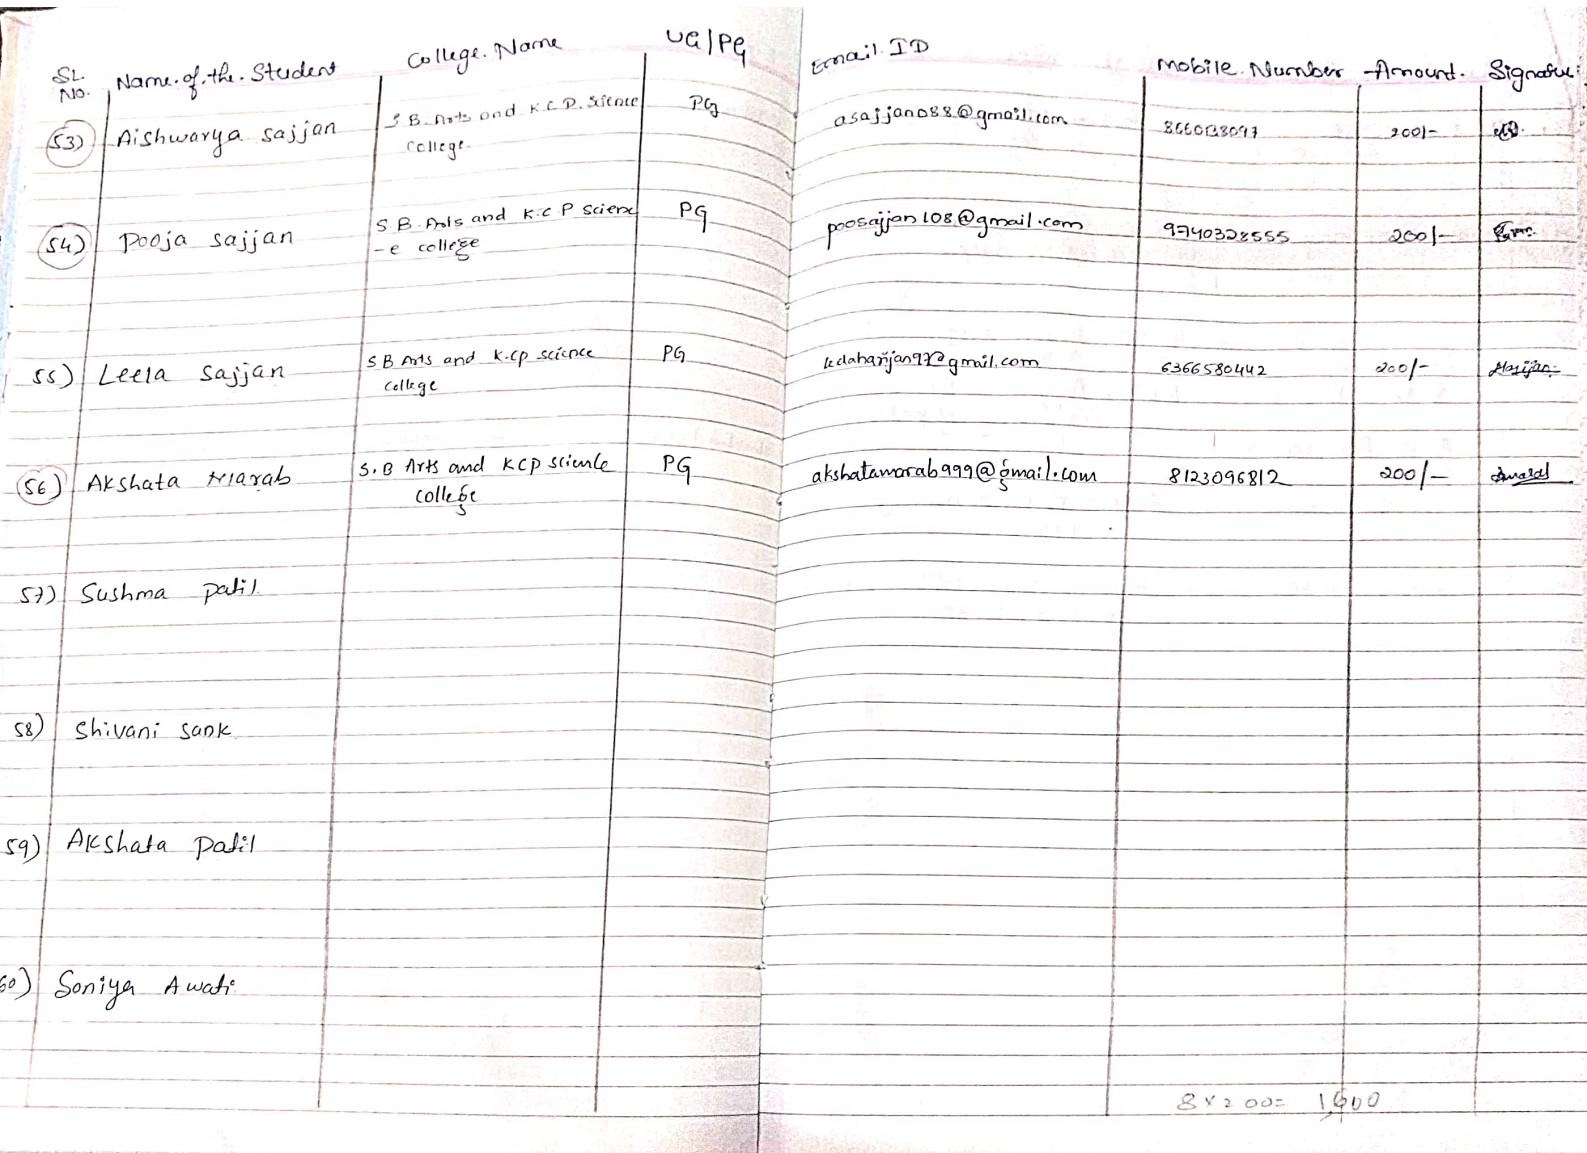 SL. No. Name.of.the.Student College.Name UG/PG Email ID Mobile Number Amount. Signature
53) Aishwarya sajjan S B Arts and K.C.P. Science PG asajjan088@gmail.com 200/-
College
54) Pooja sajjan S B Arts and K.C P Scienc PG poosajjan108@gmail.com 9740328555 200/-
-e college
55) Leela Sajjan S B Arts and K.cp science PG 6366580442 200/-
college
56) Akshata Marab S.B Arts and KCP science PG akshatamarab999@gmail.com 8123096812 200/-
college
57) Sushma patil
58) Shivani Sank
59) Akshata Patil
60) Soniya Awati
8×200= 1,600